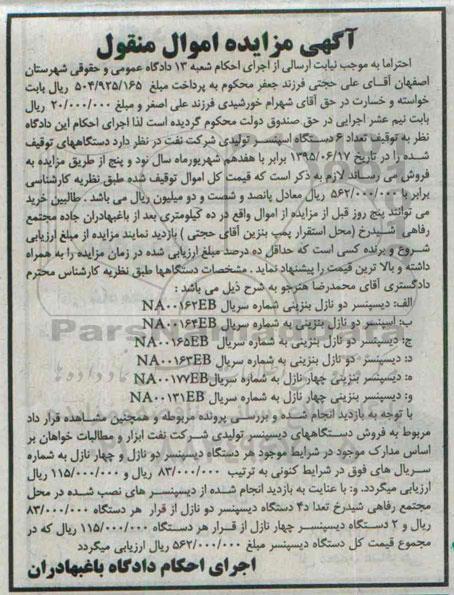 آگهی مزایده اموال منقول
احتراما به موجب نیابت ارسالی از اجرای احکام شعبه ۱۳ دادگاه عمومی و حقوقی شهرستان
اصفهان آقـــای علی حجتی فرزند جعفر محکوم به پرداخت مبلغ ۵۰۴/۹۲۵/۱۶۵ ریال بابت
خواسته و خسارت در حق آقای شهرام خورشیدی فرزند علی اصغر و مبلغ ۲۰/۰۰۰/۰۰۰ ریال
بابت نیم عشر اجرایی در حق صندوق دولت محکوم گردیده است لذا اجرای احکام این دادگاه
نظر به توقیف تعداد ۶ دستگاه اسپنسر تولیدی شرکت نفت در نظر دارد دستگاههای توقیف
شده را در تاریخ ۱۳۹۵/۰۶/۱۷ برابر با هفدهم شهریورماه سال نود و پنج از طریق مزایده به
فروش می رساند لازم به ذکر است که قیمت کل اموال توقیف شده طبق نظریه کارشناسی
برابر با ۵۶۲/۰۰۰/۰۰۰ ریال معادل پانصد و شصت و دو میلیون ریال می باشد . طالبین خرید
می توانند پنج روز قبل از مزایده از اموال واقع در ده کیلومتری بعد از باغبهادران جاده مجتمع
رفاهی شیدرخ (محل استقرار پمپ بنزین آقای حجتی ) بازدید نمایند مزایده از مبلغ ارزیابی
شروع و برنده کسی است که حداقل ده درصد مبلغ ارزیابی شده در زمان مزایده را به همراه
داشته و بالا ترین قیمت را پیشنهاد نماید . مشخصات دستگاهها طبق نظریه کارشناس محترم
دادگستری آقای محمدرضا هنرجو به شرح ذیل می باشد :
الف: دیسپنسر دو نازل بنزینی شماره سریال NA۰۰۱۶۲EB
ب: اسپنسر دو نازل بنزینی به شماره سریال NA۰۰۱۶۴EB
ج: دیسپنسر دو نازل بنزینی به شماره سریال NA۰۰۱۶۵EB
د: دیسپنسر دو نازل بنزینی به شماره سریال NA۰۰۱۶۳EB
ه: دیسپنسر بنزینی چهار نازل به شماره سریال NA۰۰۱۷۷EB
و: دیسپنسر بنزینی چهار نازل به شماره سریال NA۰۰۱۳۱EB
با توجه به بازدید انجام شده و بررسی پرونده مربوطه و همچنین مشاهده قرار داد
مربوط به فروش دستگاههای دیسپنسر تولیدی شرکت نفت ابزار و مطالبات خواهان بر
اساس مدارک موجود در شرایط موجود هر دستگاه دیسپنسر دو نازل و چهار نازل به شماره
سریال های فوق در شرایط کنونی به ترتیب ۸۳/۰۰۰/۰۰۰ ریال و ۱۱۵/۰۰۰/۰۰۰ ریال
ارزیابی میگردد. و: با عنایت به بازدید انجام شده از دیسپنسر های نصب شده در محل
مجتمع رفاهی شیدرخ تعدا د۴ دستگاه دیسپنسر دو نازل از قرار هر دستگاه ۸۳/۰۰۰/۰۰۰
ریال و ۲ دستگاه دیسپنسر چهار نازل از قرار هر دستگاه ۱۱۵/۰۰۰/۰۰۰ ریال که در
مجموع قیمت کل دستگاه دیسپنسر مبلغ ۵۶۲/۰۰۰/۰۰۰ ریال ارزیابی میگردد
اجرای احکام دادگاه باغبهادران